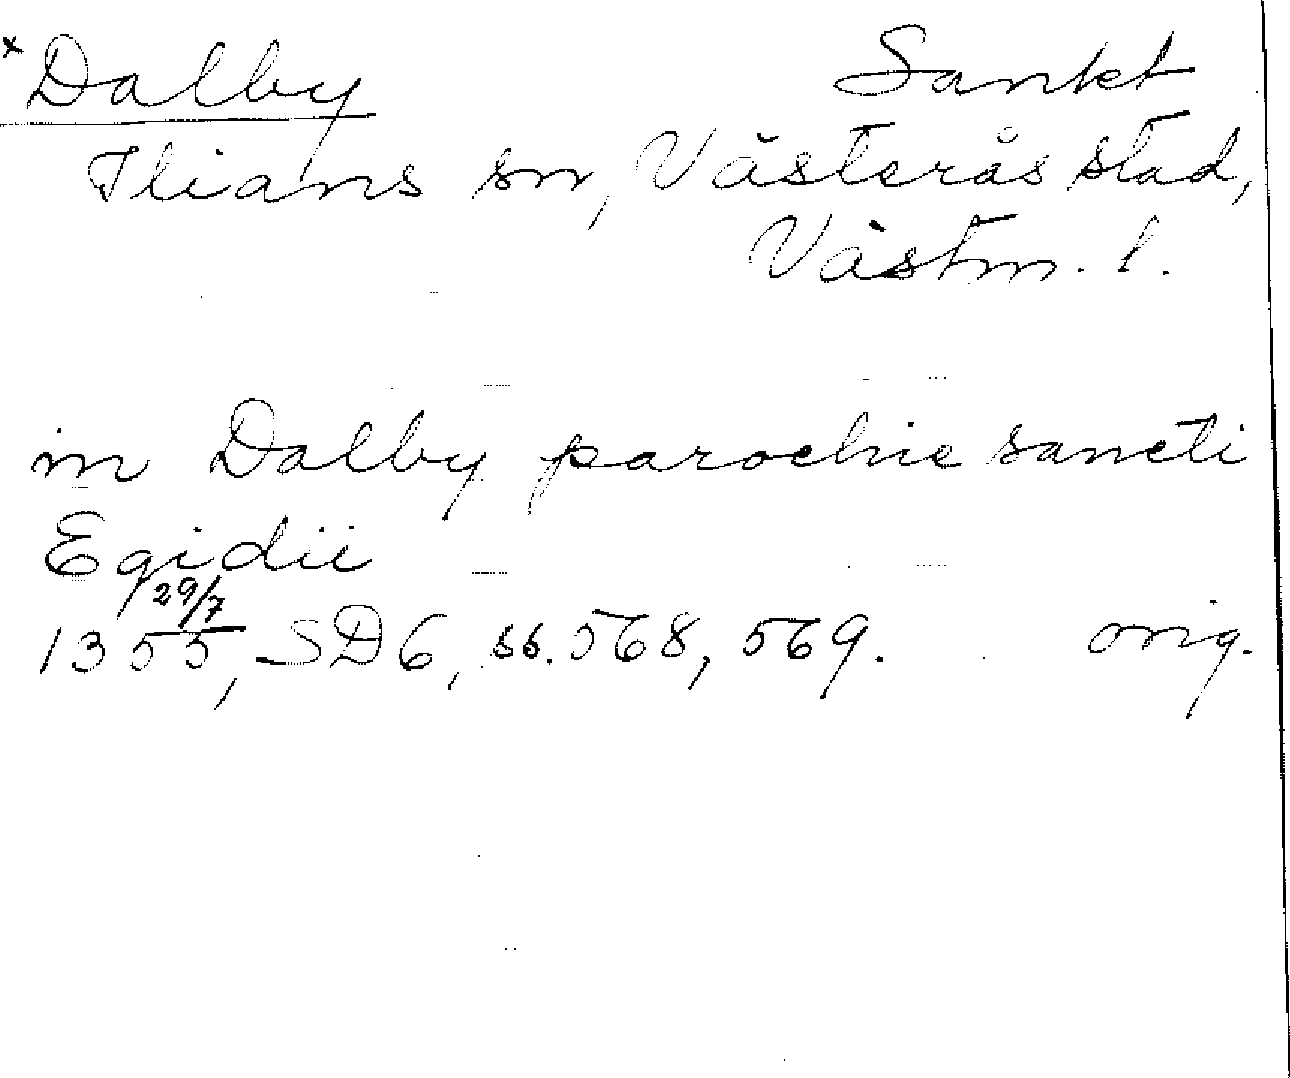 x Dalby Sankt
Ilians sn, Västerås stad,
Västm. l.
in Dalby parochie sancti
Egidii
29/7
1355, SD6, ss. 568, 569. orig.